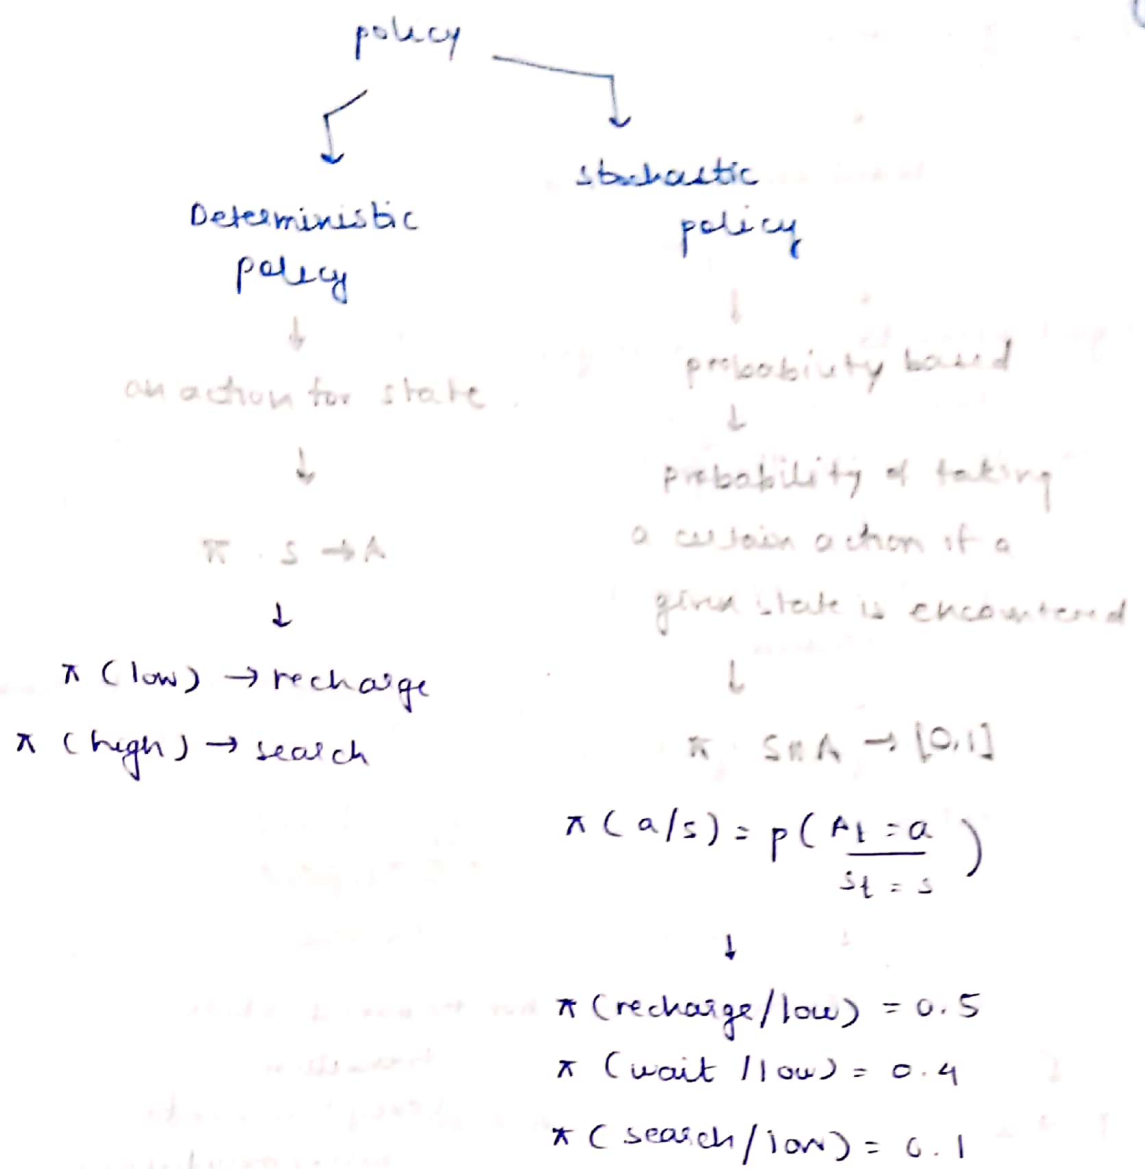 policy
Deterministic
policy
↓
an action for state
↓
π . S → A
↓
π (low) → recharge
π (high) → search
stochastic
policy
↓
probability based
↓
probability of taking
a certain action if a
given state is encountered
↓
π S x A → [0,1]
π (a/s) = p( At = a / St = s )
↓
π (recharge/low) = 0.5
π (wait /low) = 0.4
π (search/low) = 0.1